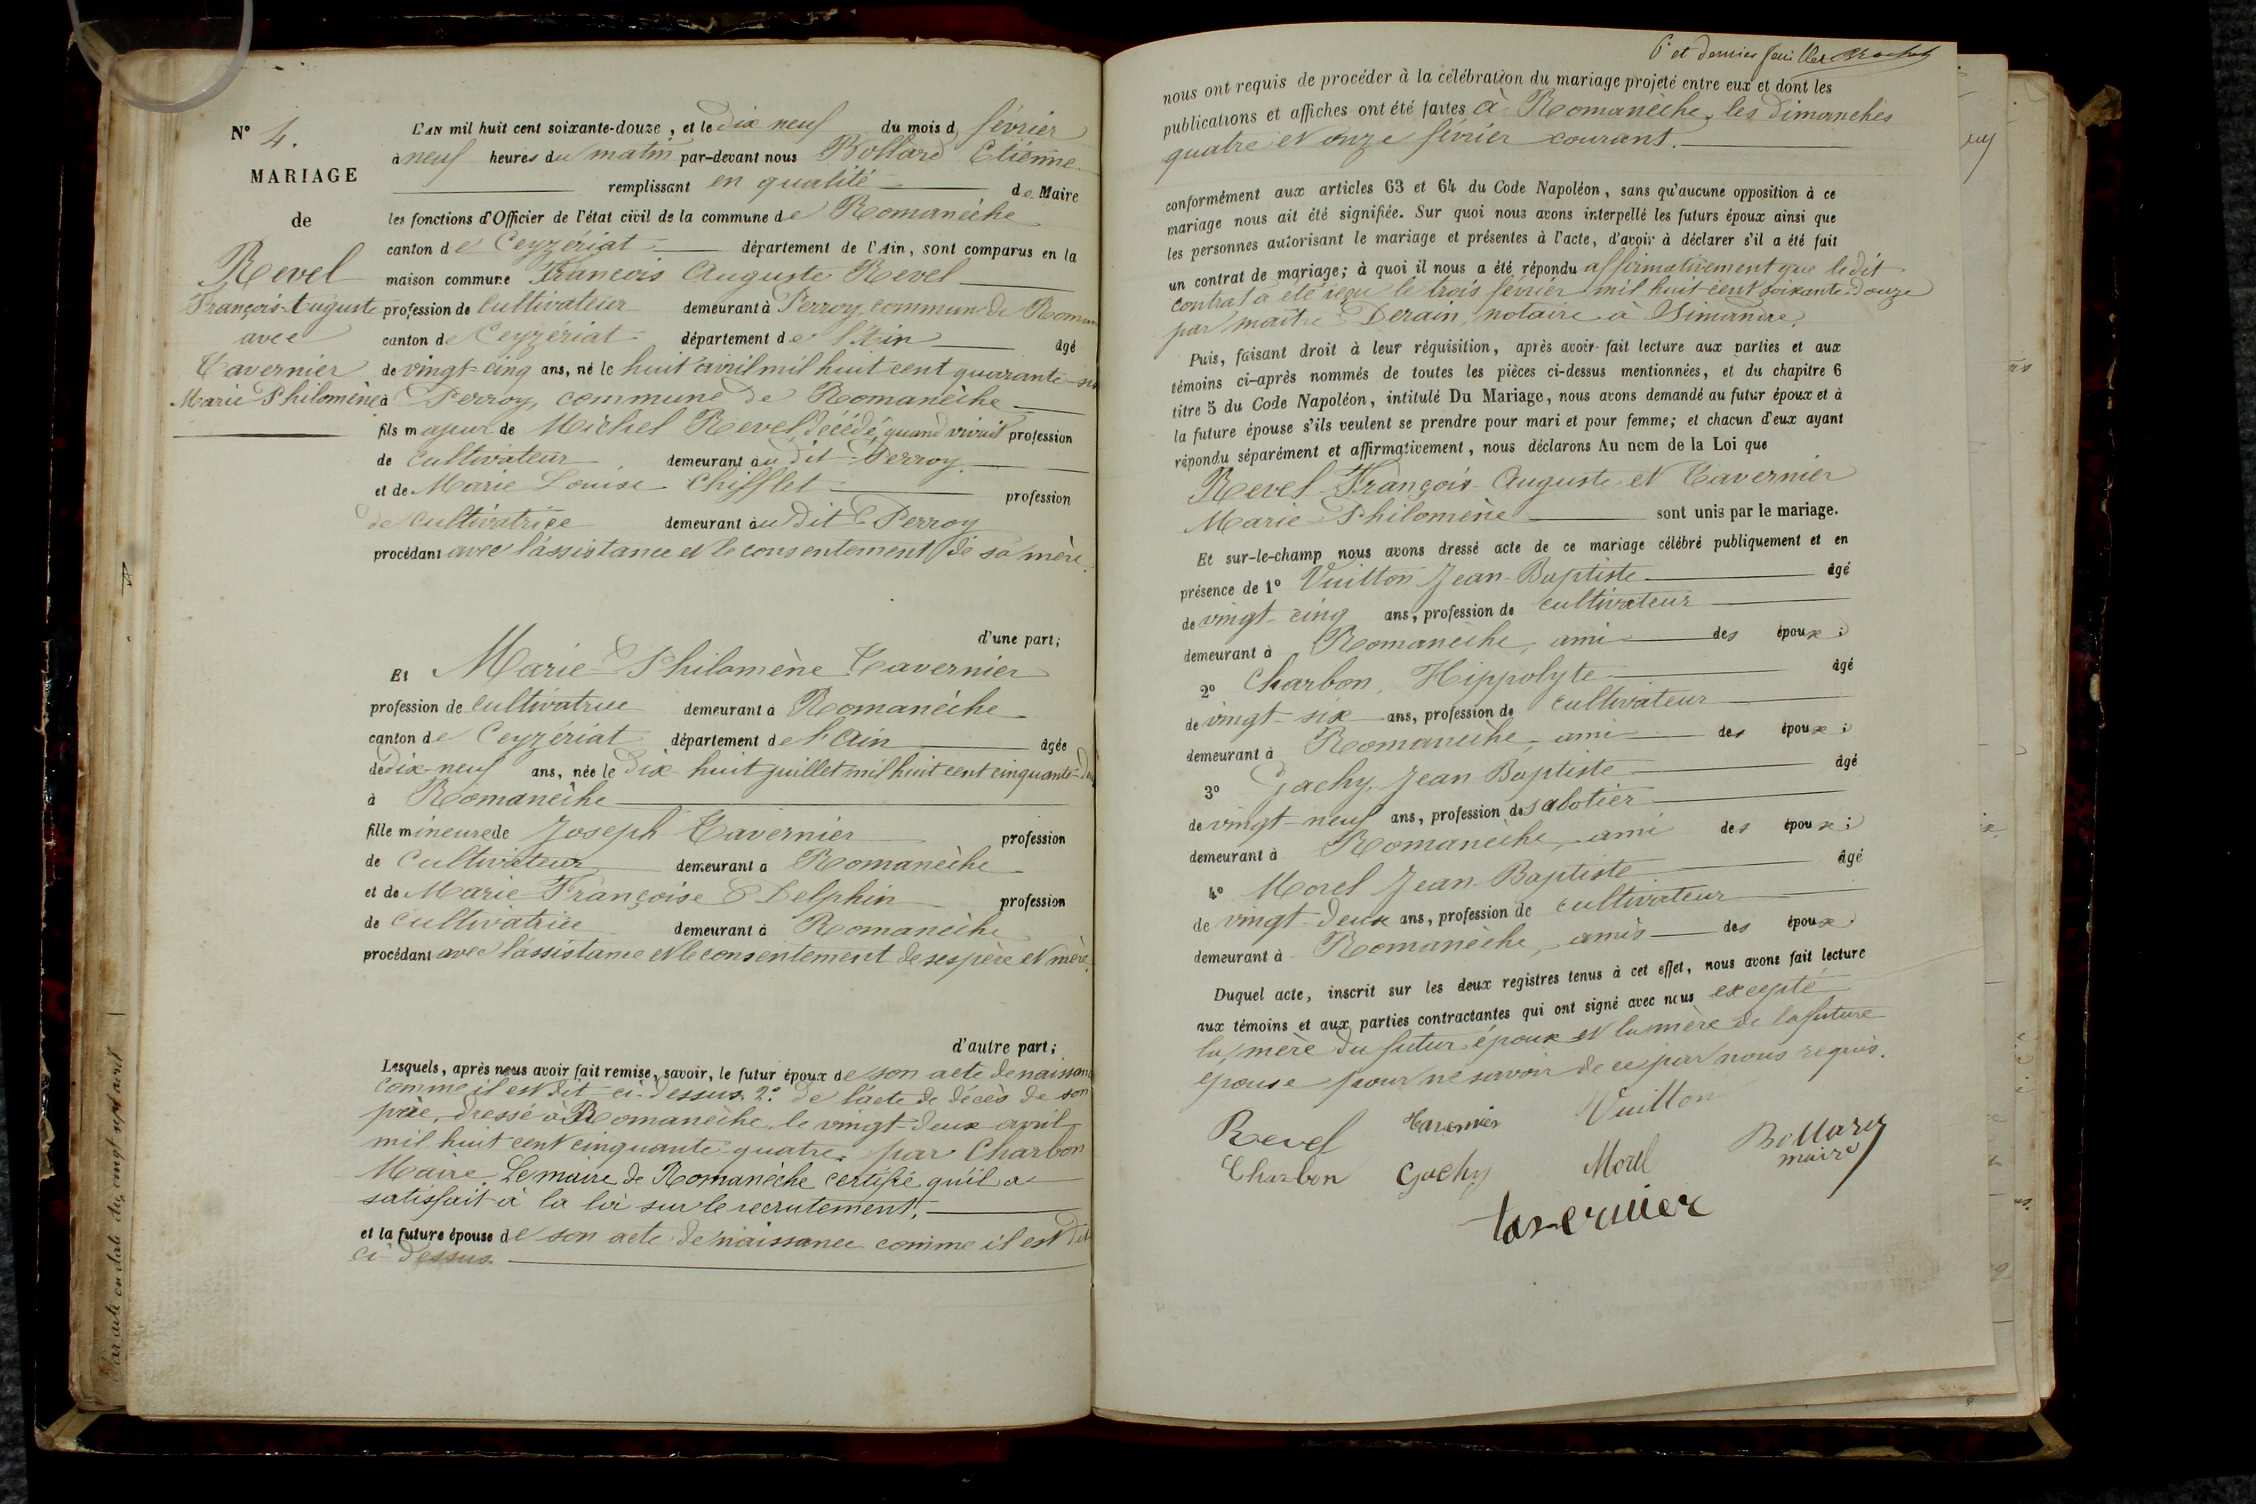 N° 4.
MARIAGE
de
Revel
François-Auguste
avec
Tavernier
Marie Philomène
L'AN mil huit cent soixante-douze, et le dix neuf du mois de février
à neuf heures du matin par-devant nous Bollard Etienne
remplissant en qualité de Maire
les fonctions d'Officier de l'état civil de la commune de Romanèche
canton de Ceyzériat département de l'Ain, sont comparus en la
maison commune François Auguste Revel
profession de Cultivateur demeurant à Perroy, commun de Roman
canton de Ceyzériat département de l'Ain âgé
de vingt-cinq ans, né le huit avril mil huit cent quarante
à Perroy, commune de Romanèche
fils majeur de Michel Revel, décédé, quand vivait profession
de Cultivateur demeurant au dit Perroy.
et de Marie Louise Chifflet profession
de cultivatrice demeurant au dit Perroy
procédant avec l'assistance et le consentement de sa mère.
d'une part;
Et Marie Philomène Tavernier
profession de cultivatrice demeurant à Romanèche
canton de Ceyzériat département de l'Ain âgée
de dix-neuf ans, née le dix-huit juillet mil huit cent cinquante-deux
à Romanèche
fille mineure de Joseph Tavernier profession
de Cultivateur demeurant à Romanèche
et de Marie Françoise Delphin profession
de Cultivatrice demeurant à Romanèche
procédant avec l'assistance et le consentement de ses père et mère.
d'autre part;
Lesquels, après nous avoir fait remise, savoir, le futur époux de son acte de naissance
comme il est dit ci-dessus. 2° de l'acte de décès de son
père, dressé à Romanèche, le vingt-deux avril
mil huit cent cinquante-quatre, par Charbon
Maire. Le maire de Romanèche certifie qu'il a
satisfait à la loi sur le recrutement.
et la future épouse de son acte de naissance comme il est dit
ci-dessus.
Par acte en date du vingt sept avril
6e et dernier feuillet
nous ont requis de procéder à la célébration du mariage projeté entre eux et dont les
publications et affiches ont été faites à Romanèche, les dimanches
quatre et onze février courant.
conformément aux articles 63 et 64 du Code Napoléon, sans qu'aucune opposition à ce
mariage nous ait été signifiée. Sur quoi nous avons interpellé les futurs époux ainsi que
les personnes autorisant le mariage et présentes à l'acte, d'avoir à déclarer s'il a été fait
un contrat de mariage; à quoi il nous a été répondu affirmativement que le dit
contrat a été reçu le trois février mil huit cent soixante-douze
par maître Derain, notaire à Simandre.
Puis, faisant droit à leur réquisition, après avoir fait lecture aux parties et aux
témoins ci-après nommés de toutes les pièces ci-dessus mentionnées, et du chapitre 6
titre 5 du Code Napoléon, intitulé Du Mariage, nous avons demandé au futur époux et à
la future épouse s'ils veulent se prendre pour mari et pour femme; et chacun d'eux ayant
répondu séparément et affirmativement, nous déclarons Au nom de la Loi que
Revel François Auguste et Tavernier
Marie Philomène sont unis par le mariage.
Et sur-le-champ nous avons dressé acte de ce mariage célébré publiquement et en
présence de 1° Vuitton Jean-Baptiste âgé
de vingt-cinq ans, profession de cultivateur
demeurant à Romanèche, ami des époux;
2° Charbon, Hippolyte âgé
de vingt-six ans, profession de cultivateur
demeurant à Romanèche, ami des époux;
3° Gachy, Jean Baptiste âgé
de vingt-neuf ans, profession de sabotier
demeurant à Romanèche, ami des époux;
4° Morel Jean-Baptiste âgé
de vingt-deux ans, profession de cultivateur
demeurant à Romanèche, amis des époux
Duquel acte, inscrit sur les deux registres tenus à cet effet, nous avons fait lecture
aux témoins et aux parties contractantes qui ont signé avec nous excepté
la mère du futur époux et la mère de la future
épouse pour ne savoir de ce par nous requis.
Revel Tavernier Vuitton
Charbon Gachy Morel Bollard
maire
tavernier